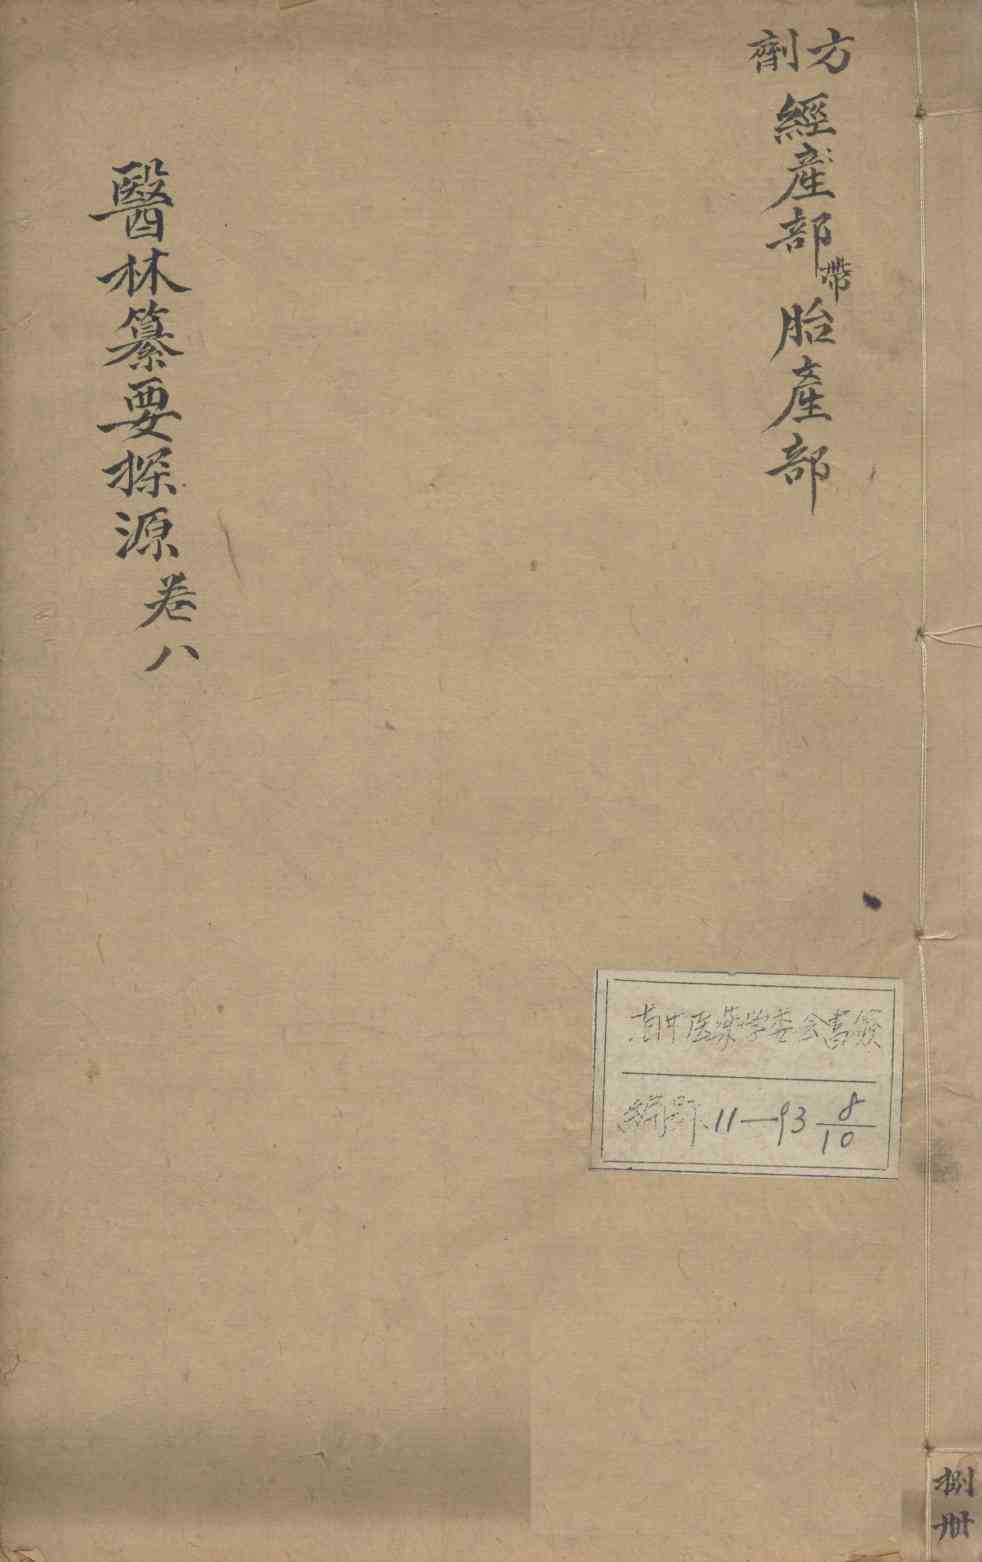 方劑
經産部帶胎產部
醫林纂要探源卷八
中医药学委会書籤
編號11—93 8/10
捌冊